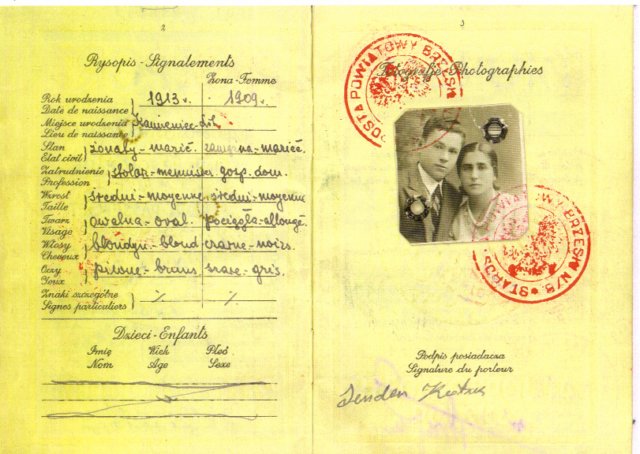 2
Rysopis - Signalements
Żona - Femme
Rok urodzenia
Date de naissance
1913 r.
1909 r.
Miejsce urodzenia
Lieu de naissance
Kamieniec-Lit.
Stan
Etat civil
żonaty - marié
zamężna - mariée
Zatrudnienie
Profession
stolarz - menuisier
gosp. dom.
Wzrost
Taille
średni - moyenne
średni - moyenne
Twarz
Visage
owalna - oval
pociągła - allongé
Włosy
Cheveux
blondyn - blond
czarne - noirs
Oczy
Yeux
piwne - bruns
szare - gris
Znaki szczególne
Signes particuliers
Dzieci - Enfants
Imię Wiek Płeć
Nom Age Sexe
3
Fotografje - Photographies
STAROSTA POWIATOWY BRZESKI
STAROSTA POWIATOWY BRZESKI N/B.
Podpis posiadacza
Signature du porteur